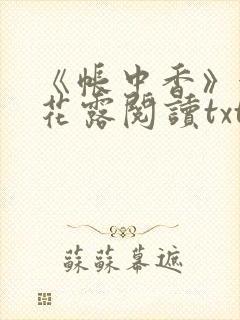 《帳中香》
花露閱讀txt
蘇蘇幕遮